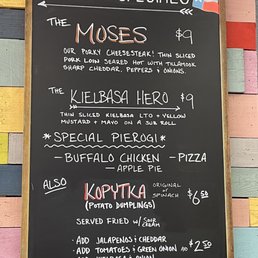 SPECIALS
THE
MOSES $9
OUR PORKY CHEESESTEAK! THIN SLICED
PORK LOIN SEARED HOT WITH TILLAMOOK
SHARP CHEDDAR, PEPPERS & ONIONS.
THE
KIELBASA HERO $9
THIN SLICED KIELBASA LTO + YELLOW
MUSTARD + MAYO ON A SUB ROLL
*SPECIAL PIEROGI*
- BUFFALO CHICKEN - PIZZA
- APPLE PIE
ALSO
KOPYTKA
(POTATO DUMPLINGS)
ORIGINAL
or
SPINACH
$6.50
SERVED FRIED W/ SOUR
CREAM
· ADD JALAPENOS & CHEDDAR
· ADD TOMATOES & GREEN ONION
$2.50